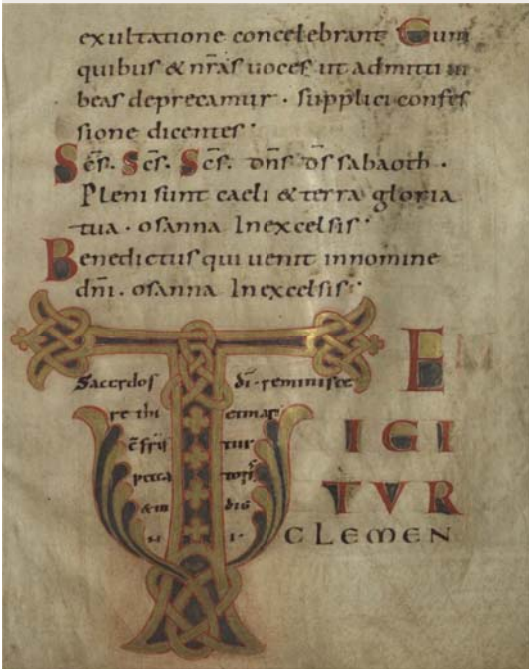 exultatione concelebrant Cum
quibus & nr̄as uoces ut admitti iu
beas deprecamur · supplici confes
sione dicentes ·
Sc̄s. Sc̄s. Sc̄s. dn̄s ds̄ sabaoth ·
Pleni sunt caeli & terra gloria
tua · osanna Inexcelsis ·
Benedictus qui uenit innomine
dn̄i · osanna Inexcelsis ·
T E
IGI
TVR
CLEMEN
Sacerdos dī · reminisce